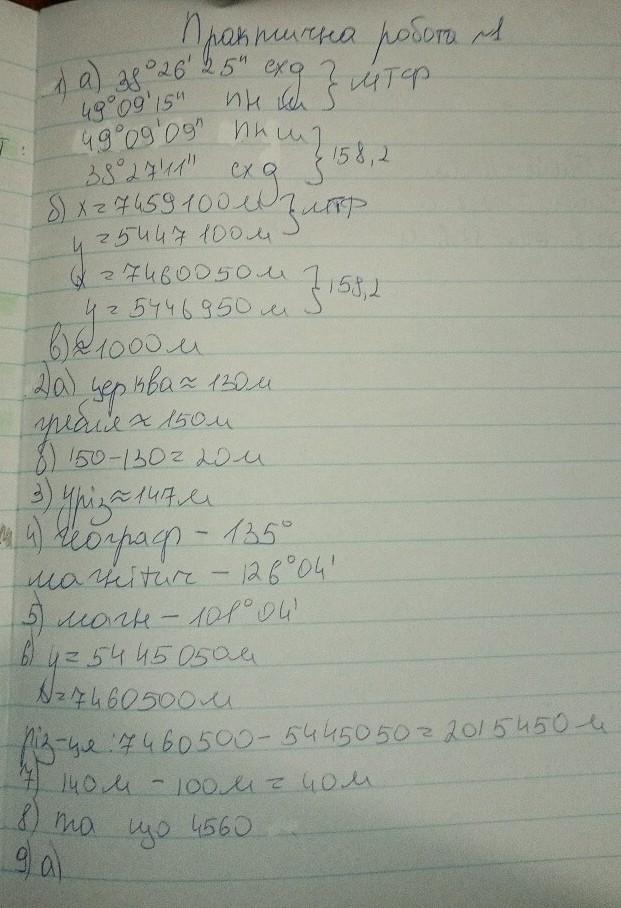 Практична робота №1
1) а) 38°26'25" схд } МТФ
49°09'15" пн ш
49°09'09" пн ш } 158,2
38°27'11" схд
б) x=7459100м } МТФ
y=5447100м
x=7460050м } 158,2
y=5446950м
в) ≈1000м
2) а) церква≈130м
гребля≈150м
б) 150-130=20м
3) уріз≈147м
4) географ - 135°
магнітич - 126°04'
5) магн - 101°04'
6) y=5445050м
x=7460500м
різ-ця: 7460500-5445050=2015450м
7) 140м - 100м = 40м
8) та що 4560
9) а)